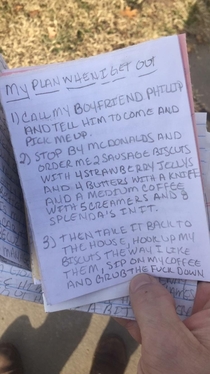 MY PLAN WHEN I GET OUT
1) CALL MY BOYFRIEND PHILLIP
AND TELL HIM TO COME AND
PICK ME UP.
2) STOP BY MCDONALDS AND
ORDER ME 2 SAUSAGE BISCUTS
WITH 4 STRAWBERRY JELLYS
AND 4 BUTTERS WITH A KNIFE
AND A MEDIUM COFFEE
WITH 5 CREAMERS AND 8
SPLENDA'S IN IT.
3) THEN TAKE IT BACK TO
THE HOUSE, HOOK UP MY
BISCUTS THE WAY I LIKE
THEM, SIP ON MY COFFEE
AND GRUB THE FUCK DOWN